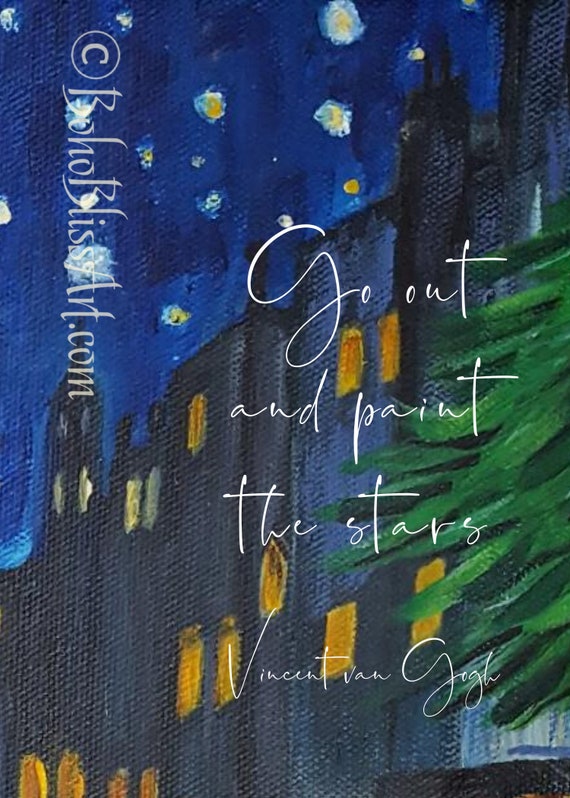 ©BohoBlissArt.com
Go out
and paint
the stars
Vincent van Gogh